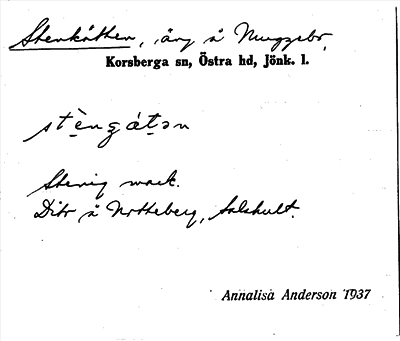 Stenkåtten, äng å Muggebo,
Korsberga sn, Östra hd, Jönk. l.
stèngátən
Stenig mark.
Dito å Notteberg, Salshult.
Annalisa Anderson 1937